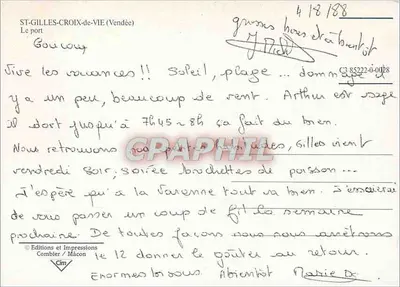 ST-GILLES-CROIX-de-VIE (Vendée)
Le port
4/8/88
grosses bises et à bientôt
Coucou
CI 85222-0-0028
Vive les vacances!! Soleil, plage... dommage il
y a un peu, beaucoup de vent. Arthur est sage
il dort jusqu'à 7h45-8h ça fait du bien.
Nous retrouvons nos petites habitudes, Gilles vient
vendredi soir, soirée brochettes de poisson...
J'espère qu'à la Varenne tout va bien. J'essaierai
de vous passer un coup de fil la semaine
prochaine. De toutes façons nous nous arrêterons
le 12 donner le goûter au retour.
Enormes bisous Abientôt Marie D.
© Editions et Impressions
Combier / Mâcon
Cim
CPAPHIL